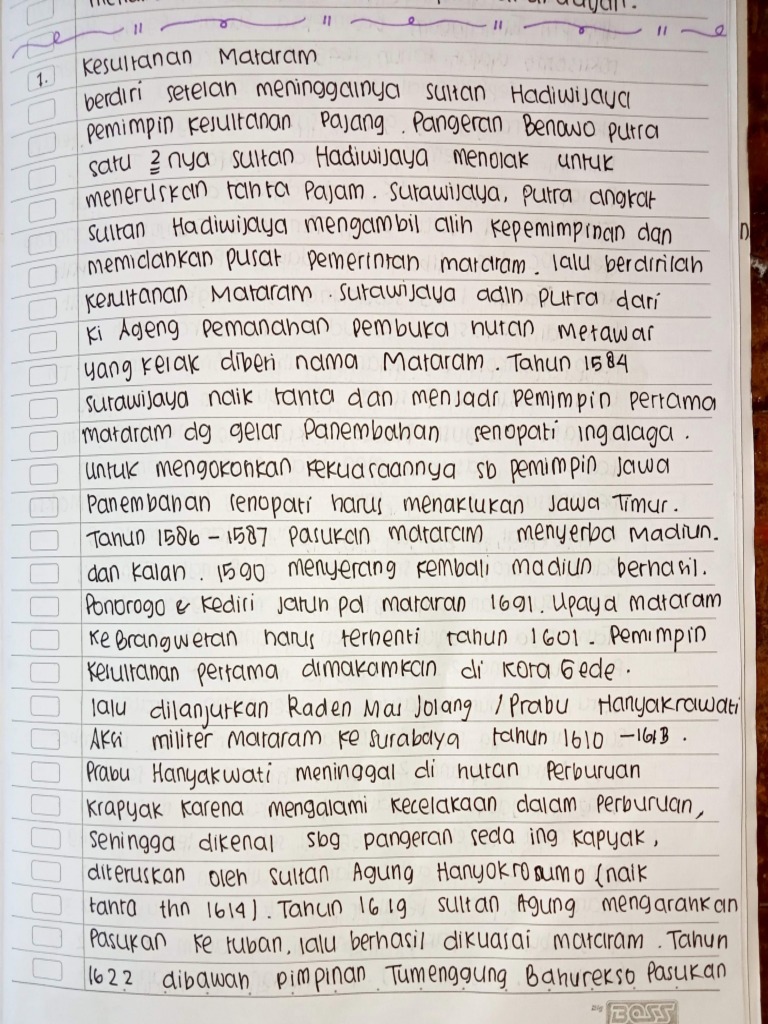 1. Kesultanan Mataram
berdiri setelah meninggalnya sultan Hadiwijaya
pemimpin kesultanan Pajang. Pangeran Benowo putra
satu 2 nya sultan Hadiwijaya menolak untuk
meneruskan tahta Pajam. Sutawijaya, putra angkat
Sultan Hadiwijaya mengambil alih kepemimpinan dan
memidahkan pusat pemerintah mataram. lalu berdirilah
kesultanan Mataram. Sutawijaya adlh putra dari
Ki Ageng pemanahan pembuka hutan Metawar
yang kelak diberi nama Mataram. Tahun 1584
Sutawijaya naik tahta dan menjadi pemimpin pertama
mataram dg gelar Panembahan senopati ingalaga.
untuk mengokohkan kekuasaannya sb pemimpin Jawa
Panembahan senopati harus menaklukan Jawa Timur.
Tahun 1586 - 1587 pasukan mataram menyerba Madiun.
dan kalah. 1590 menyerang kembali madiun berhasil.
Ponorogo & Kediri jatuh pd mataran 1691. Upaya mataram
ke Brangwetan harus terhenti tahun 1601. Pemimpin
kesultanan pertama dimakamkan di Kota Gede.
lalu dilanjutkan Raden Mas Jolang / Prabu Hanyakrawati
Aksi militer Mataram ke Surabaya tahun 1610 - 1613.
Prabu Hanyakwati meninggal di hutan Perburuan
krapyak karena mengalami kecelakaan dalam perburuan,
sehingga dikenal sbg pangeran seda ing kapyak,
diteruskan oleh Sultan Agung Hanyokrosumo (naik
tahta thn 1614). Tahun 1619 sultan Agung mengarahkan
Pasukan ke tuban, lalu berhasil dikuasai mataram. Tahun
1622 dibawah pimpinan Tumenggung Bahurekso Pasukan
BOSS